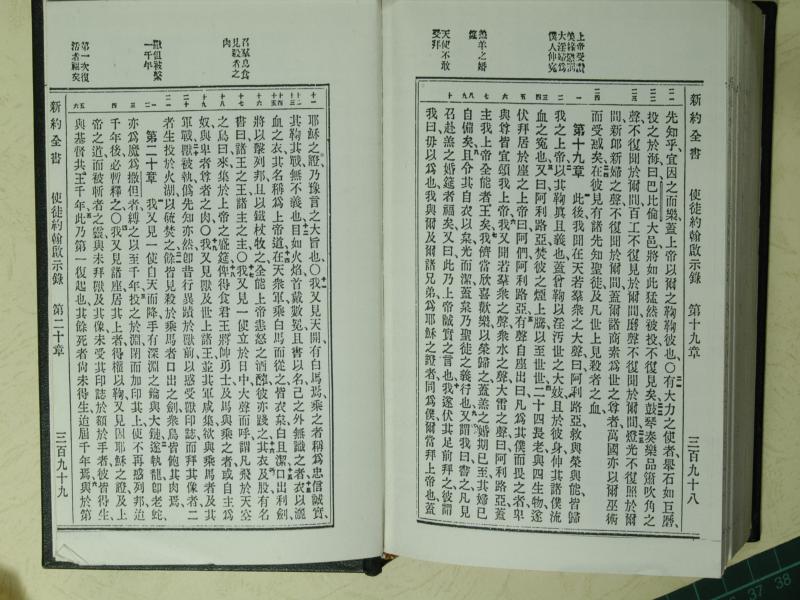 新約全書 使徒約翰啟示錄 第十九章 三百九十八
上帝受讚
美緣懲罰
大淫婦爲
僕人伸寃
羔羊之婚
筵
天使不敢
受拜
先知乎、宜因之而樂、蓋上帝以爾之鞫鞫彼也、○有大力之使者、舉石如巨磨、
投之於海曰、巴比倫大邑將如此猛然被投、不復見矣、鼓琴奏樂品簫吹角之
聲、不復聞於爾間、百工不復見於爾間、磨聲不復聞於爾間、燈光不復照於爾
間、新郎新婦之聲、不復聞於爾間、蓋爾諸商素爲世之尊者、萬國亦以爾巫術
而受惑矣、在彼見有諸先知聖徒、及凡世上見殺者之血、
第十九章 此後我聞在天若羣衆之大聲曰、阿利路亞、救與榮與能、皆歸
我之上帝、以其鞫眞且義也、蓋曾鞫以淫污世之大妓、且於彼身伸其諸僕流
血之寃也、又曰、阿利路亞、焚彼之煙上騰、以至世世、二十四長老與四生物、遂
伏拜居於座之上帝曰、阿們、阿利路亞、有聲自座出曰、凡爲其僕而畏之者、卑
與尊皆宜頌我上帝、我又聞若羣衆之聲、衆水之聲、大雷之聲曰、阿利路亞、蓋
主我上帝全能者王矣、我儕當欣喜歡樂、以榮歸之、蓋羔之婚期已至、其婦已
自備矣、且令其自衣以枲、光而潔、蓋枲乃聖徒之義行也、又謂我曰、書之、凡見
召赴羔之婚筵者福矣、又曰、此乃上帝誠實之言也、我遂伏其足前拜之、彼謂
我曰、毋以爲也、我與爾及爾諸兄弟爲耶穌之證者、同爲僕、爾當拜上帝也、蓋
召羣鳥食
見殺者之
肉
獸但被繫
一千年
第一次復
活者福矣
耶穌之證、乃豫言之大旨也、○我又見天開、有白馬焉、乘之者稱爲忠信誠實、
其鞫其戰、無不義也、目如火焰、首戴數冕、且書以名、己之外無識之者、衣以灑
血之衣、其名稱爲上帝道、在天衆軍乘白馬而從之、皆衣枲、白且潔、口出利劍、
將以擊列邦、且以鐵杖牧之、全能上帝恚怒之酒醡、彼亦踐之、其衣及股有名
書曰、諸王之王、諸主之主、○我又見一使立於日中、大聲而呼、謂凡飛於天空
之鳥曰、來集於上帝之盛筵、俾得食君王將帥勇士、及馬與乘之者、或自主爲
奴、與卑者尊者之肉、○我又見獸及世上諸王、並其軍咸集、欲與乘馬者及其
軍戰、獸被執、僞先知亦然、卽昔行異蹟於獸前、以惑受獸印誌而拜其像者、二
者生投於火湖、以硫焚之、餘皆見殺於乘馬者口出之劍、衆鳥皆飽其肉焉、
第二十章 我又見一使自天而降、手有深淵之鑰與大鏈、遂執龍、卽老蛇、
亦爲魔、爲撒但者、縛之以至千年、投之於淵、閉而加印其上、使不再惑列邦、迨
千年後、必暫釋之、○我又見諸座、居其上者得權以鞫、又見因耶穌之證及上
帝之道而被斬者之靈、與未拜獸及其像、未受其印誌於額於手者、彼皆得生、
與基督共王千年、此乃第一復起也、其餘死者尙未得生、迨屆千年焉、與於第
新約全書 使徒約翰啟示錄 第二十章 三百九十九
37 38